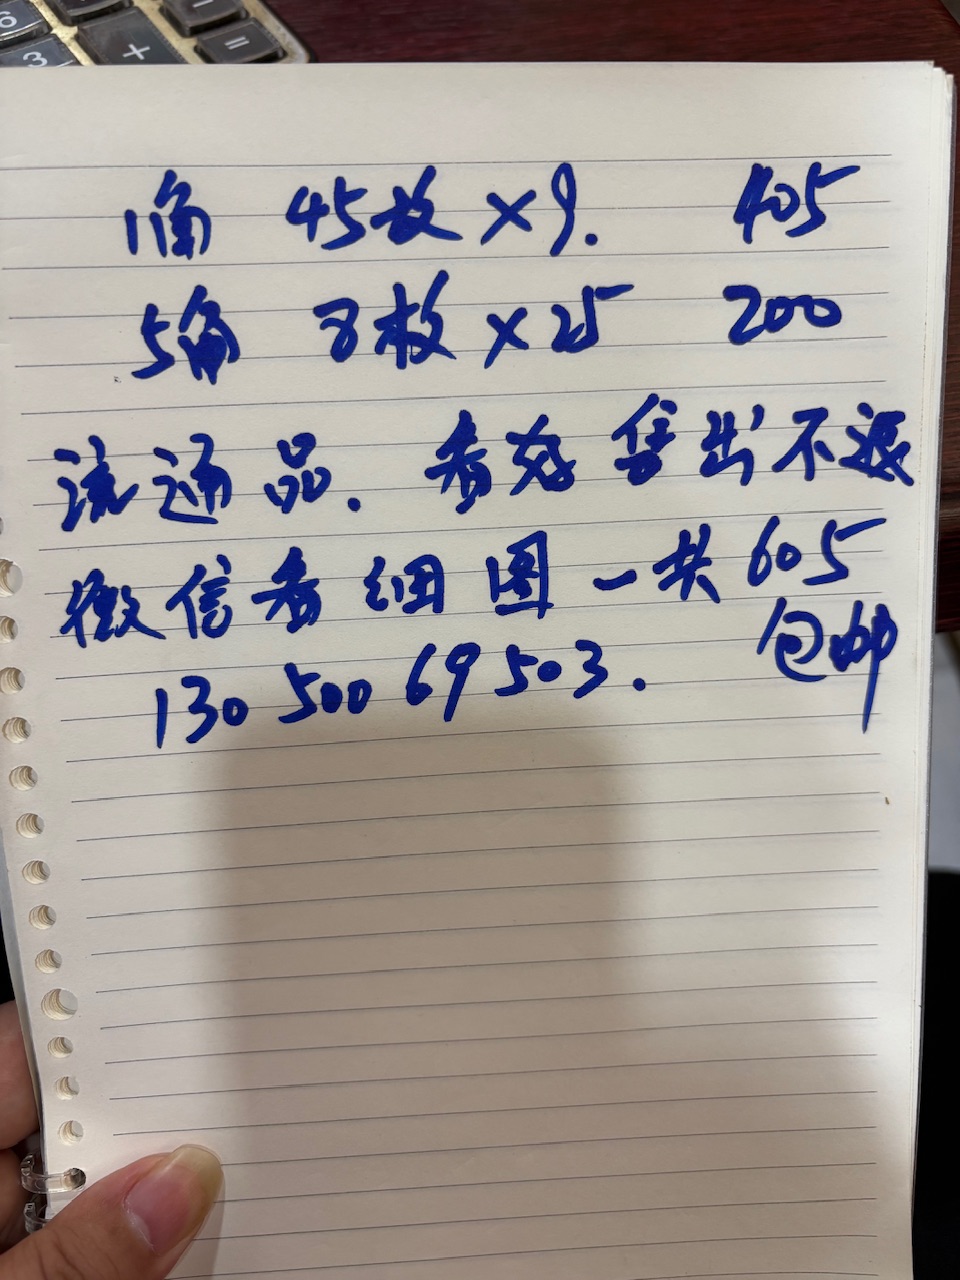 6 - 
3 + =
1角 45枚 ×9. 405
5角 8枚 ×25 200
流通品. 看好售出不退
微信看细图一共605
包邮
130 500 69 503.